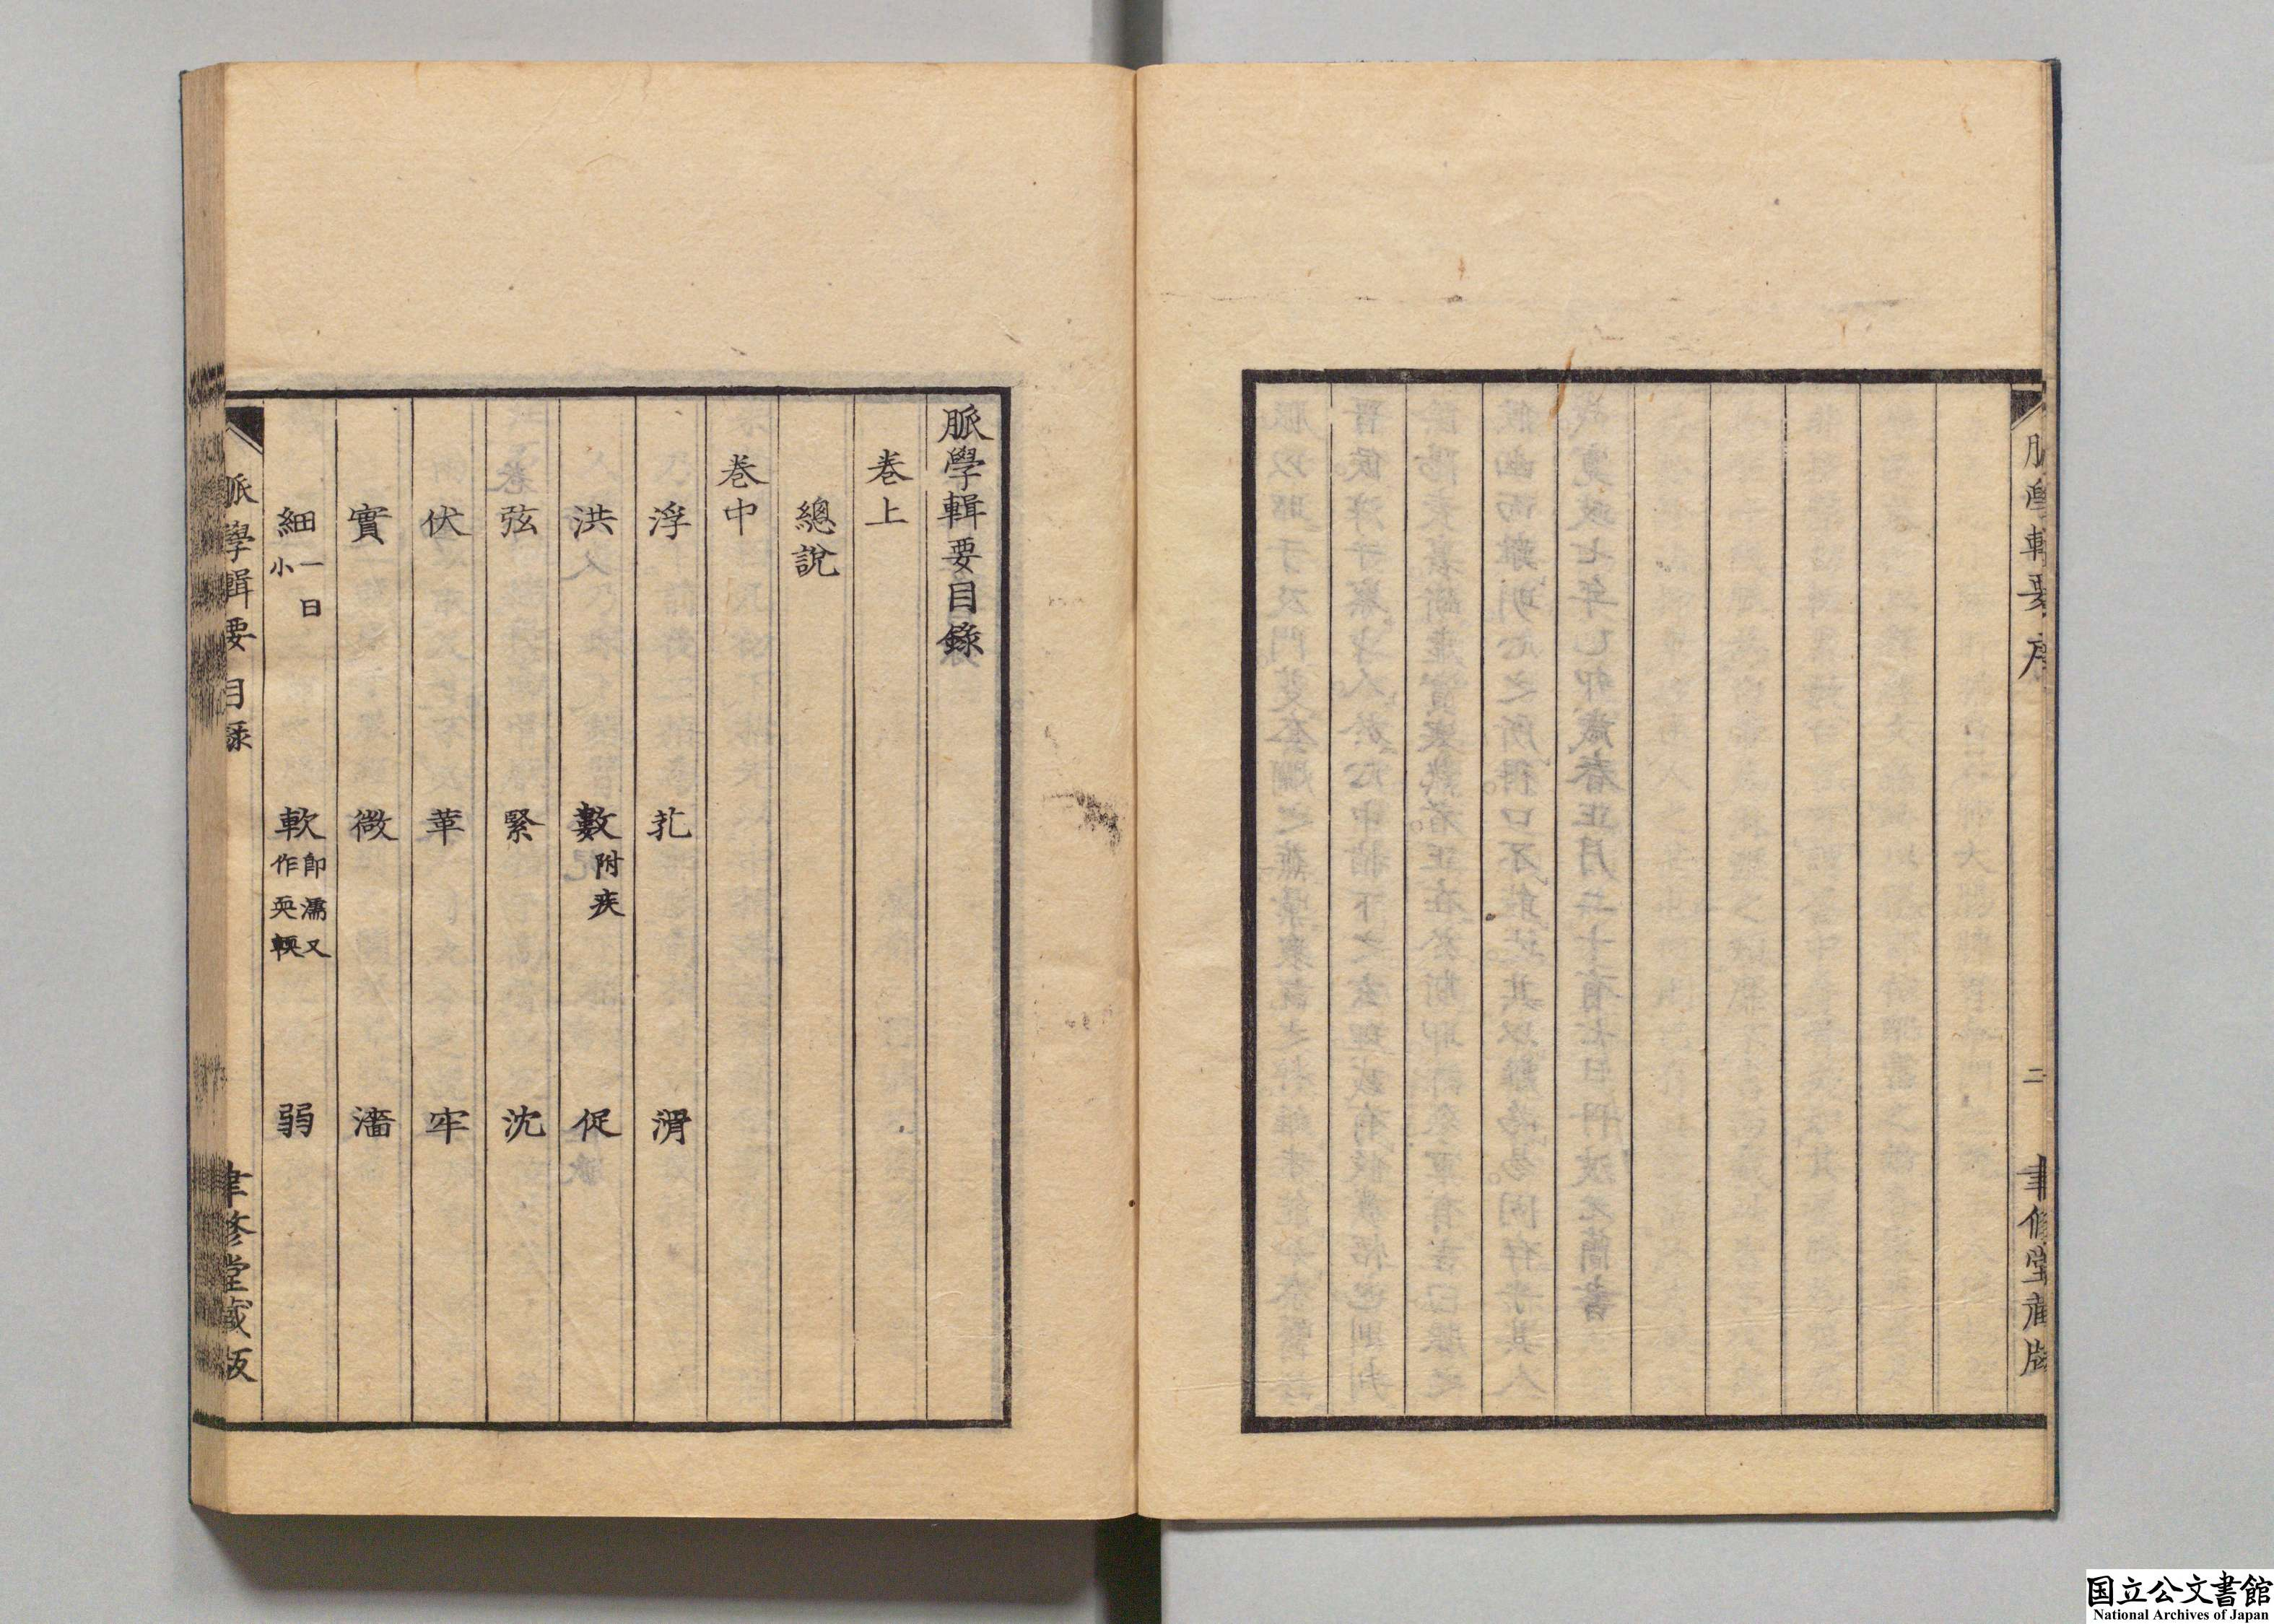 脈學輯要序
二
聿修堂藏版
脈學輯要目錄
卷上
總說
卷中
浮 芤 滑
洪 數附疾 促
弦 緊 沈
伏 革 牢
實 微 濇
細一曰小 軟即濡又作耎輭 弱
脈學輯要 目錄
聿修堂藏版
国立公文書館
National Archives of Japan